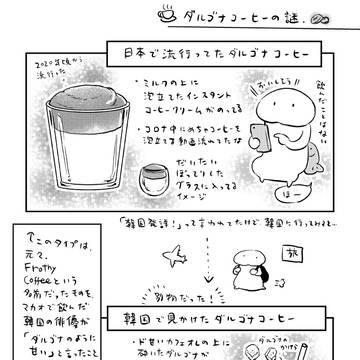 ダルゴナコーヒーの謎。
日本で流行ってたダルゴナコーヒー
2020年頃から
流行った
・ミルクの上に
泡立てたインスタント
コーヒークリームがのってる
・コロナ中にめちゃコーヒーを
泡立てる動画流れてたな
だいたい
ぽってりした
グラスに入ってる
イメージ
おいしそう
飲んだことはない
ほー
「韓国発祥!」って言われてたけど、韓国に行ってみると…
旅
別物だった!
↑このタイプは、
元々、
Frothy
Coffeeという
名前だったものを、
マカオで飲んだ
韓国の俳優が
「ダルゴナのように
甘い」と言ったこと
韓国で見かけたダルゴナコーヒー
・ド甘いカフェオレの上に
砕いたダルゴナが
ダルゴナの
かけら